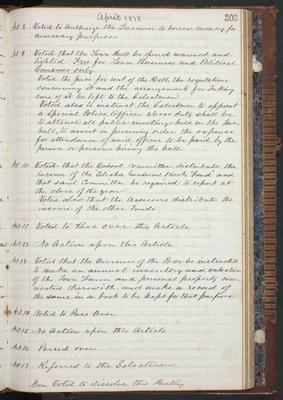 April 1878
303
Art 8 Voted to Authorize the Treasurer to borrow money for
necessary purposes
Art 9 Voted that the Town Hall be opened warmed and
lighted Free for Town Business and Political
Caucuses only
Voted the price for rent of the Hall, the regulations
concerning it and the arrangements for taking
care of it be left to the Selectmen
Voted also to instruct the Selectmen to appoint
a Special Police Officer whose duty shall be
to attend all public meetings held in the Town
hall, to assist in preserving order, the expense
for attendance of said officer to be paid by the
person or persons hiring the hall.
Art 10 Voted that the School Committee distribute the
income of the School Fund and
that said Committee be required to report at
the close of the year
Voted also that the Assessors distribute the
income of the other Funds
Art 11 Voted to Pass over this Article
Art 12 No Action upon this Article
Art 13 Voted that the Overseers of the Poor be instructed
to make an annual inventory and valuation
of the Town Farm and personal property con
nected therewith and make a record of
the same in a book to be kept for that purpose.
Art 14 Voted to Pass Over
Art 15 No Action upon this Article
Art 16 Passed over
Art 17 Referred to the Selectmen
Voted to dissolve this Meeting